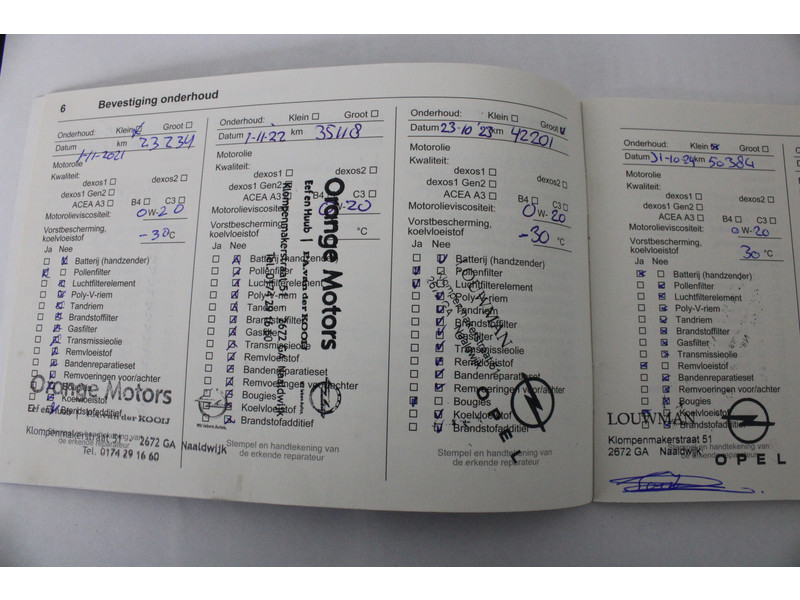 6 Bevestiging onderhoud
Onderhoud: Klein Groot
Datum 1-11-2021 km 23234
Motorolie
Kwaliteit:
dexos1 dexos2
dexos1 Gen2
ACEA A3 B4 C3
Motorolieviscositeit: 0W-20
Vorstbescherming,
koelvloeistof -30°C
Ja Nee
Batterij (handzender)
Pollenfilter
Luchtfilterelement
Poly-V-riem
Tandriem
Brandstoffilter
Gasfilter
Transmissieolie
Remvloeistof
Bandenreparatieset
Remvoeringen voor/achter
Bougies
Koelvloeistof
Brandstofadditief
Orange Motors
Eefen Huub | Fa. van der KOOIJ
Klompenmakerstraat 51 2672 GA Naaldwijk
Tel. 0174 29 16 60
Onderhoud: Klein Groot
Datum 1-11-22 km 35118
Motorolie
Kwaliteit:
dexos1 dexos2
dexos1 Gen2
ACEA A3 B4 C3
Motorolieviscositeit: 0W-20
Vorstbescherming,
koelvloeistof °C
Ja Nee
Batterij (handzender)
Pollenfilter
Luchtfilterelement
Poly-V-riem
Tandriem
Brandstoffilter
Gasfilter
Transmissieolie
Remvloeistof
Bandenreparatieset
Remvoeringen voor/achter
Bougies
Koelvloeistof
Brandstofadditief
Stempel en handtekening van
de erkende reparateur
Orange Motors
Eefen Huub | Fa. van der KOOIJ
Klompenmakerstraat 51 2672 GA Naaldwijk
Tel. 0174 29 16 60
Onderhoud: Klein Groot
Datum 23-10-'23 km 42201
Motorolie
Kwaliteit:
dexos1 dexos2
dexos1 Gen2
ACEA A3 B4 C3
Motorolieviscositeit: 0W-20
Vorstbescherming,
koelvloeistof -30°C
Ja Nee
Batterij (handzender)
Pollenfilter
Luchtfilterelement
Poly-V-riem
Tandriem
Brandstoffilter
Gasfilter
Transmissieolie
Remvloeistof
Bandenreparatieset
Remvoeringen voor/achter
Bougies
Koelvloeistof
Brandstofadditief
Stempel en handtekening van
de erkende reparateur
LOUWMAN
OPEL
Onderhoud: Klein Groot
Datum 31-10-24 km 50384
Motorolie
Kwaliteit:
dexos1 dexos2
dexos1 Gen2
ACEA A3 B4 C3
Motorolieviscositeit: 0W-20
Vorstbescherming,
koelvloeistof 30°C
Ja Nee
Batterij (handzender)
Pollenfilter
Luchtfilterelement
Poly-V-riem
Tandriem
Brandstoffilter
Gasfilter
Transmissieolie
Remvloeistof
Bandenreparatieset
Remvoeringen voor/achter
Bougies
Koelvloeistof
Brandstofadditief
LOUWMAN
Klompenmakerstraat 51
2672 GA Naaldwijk
OPEL
Stempel en handtekening van
de erkende reparateur